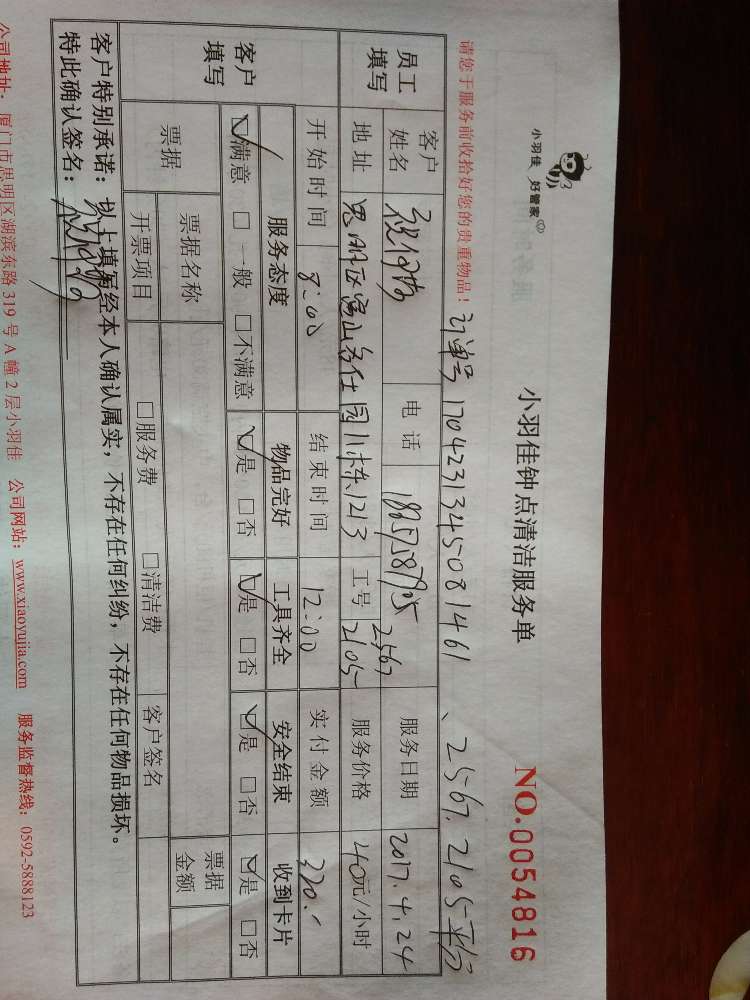 小羽佳 好管家
小羽佳钟点清洁服务单
NO.0054816
请您于服务前收拾好您的贵重物品！ 订单号 1704231345081461、2567、2105平台
员工填写 客户姓名 电话 服务日期 2017.4.24
地址 思明区 园11栋1213 工号 2567 2105 服务价格 40元/小时
客户填写 开始时间 8:00 结束时间 12:00 实付金额 320.
服务态度 物品完好 工具齐全 安全结束 收到卡片
☑满意 □一般 □不满意 ☑是 □否 ☑是 □否 ☑是 □否 ☑是 □否
票据 票据名称 票据金额
开票项目 □服务费 □清洁费 客户签名
客户特别承诺：以上填写经本人确认属实，不存在任何纠纷，不存在任何物品损坏。
特此确认签名：
公司地址：厦门市思明区湖滨东路319号A幢2层小羽佳 公司网站：www.xiaoyujia.com 服务监督热线：0592-5888123